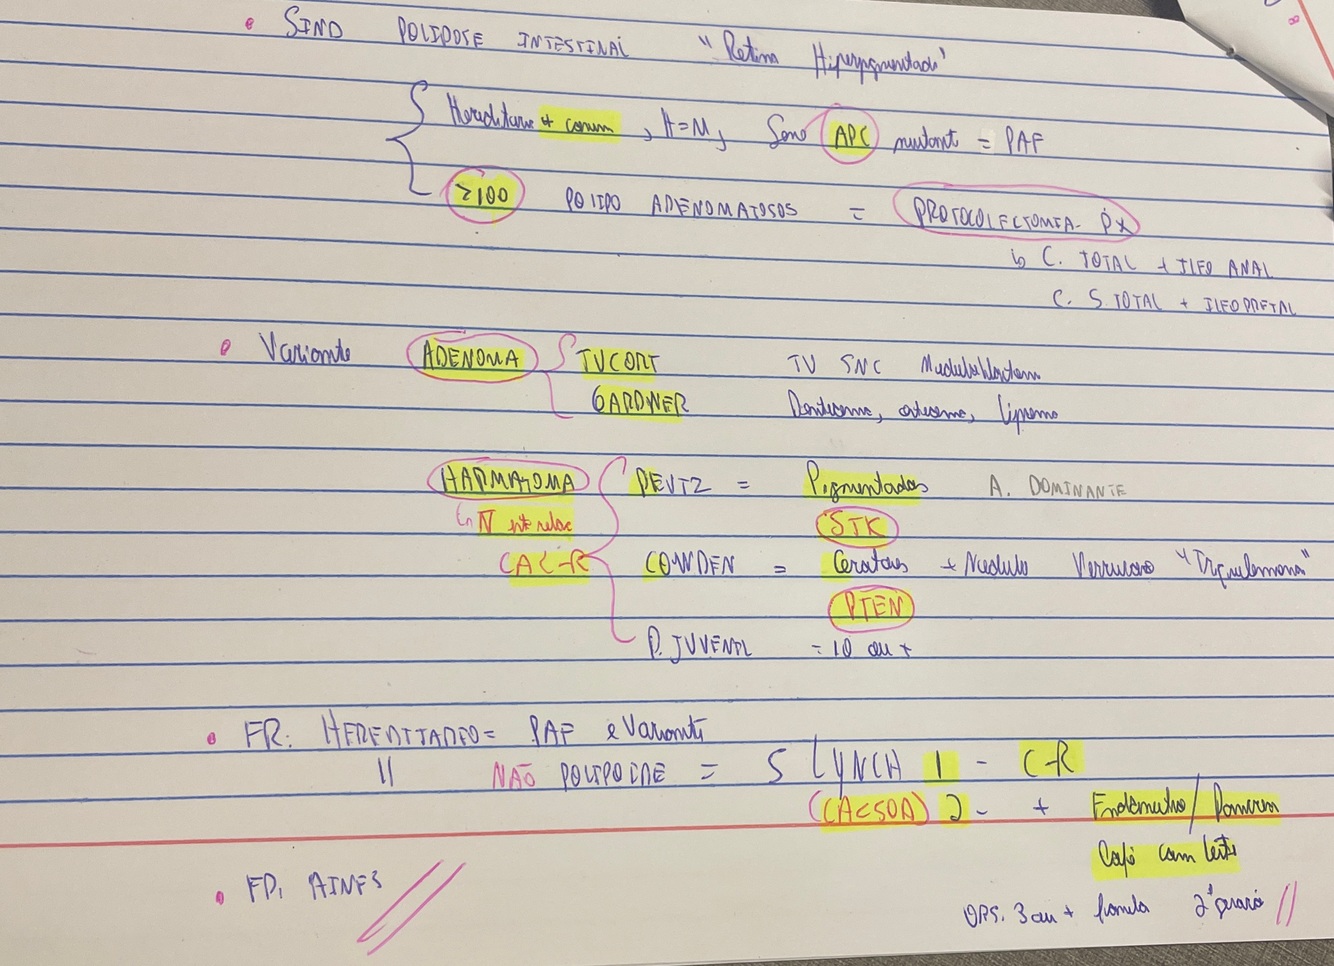 • SIND POLIPOSE INTESTINAL "Retina Hiperpigmentada"
Hereditaria + comum, H=M, Gene APC mutant = PAF
>100 POLIPO ADENOMATOSOS = PROTOCOLECTOMIA PX
↳ C. TOTAL + ILEO ANAL
C. S. TOTAL + ILEORRETAL
• Variante ADENOMA TUCORT TU SNC Meduloblastom
GARDNER Dentes, osteoma, Lipoma
HARMATOMA PEUTZ = Pigmentadas A. DOMINANTE
En N int relac STK
CA C-R COWDEN = Ceratose + Nodulo Verrucoso "Triquilemona"
PTEN
P. JUVENIL = 10 ou +
• FR: HEREDITARIO = PAF e Variante
II NÃO POLIPOIDE = S LYNCH 1 - C-R
(CA<50A) 2 - + Endométrio/ Pancrea
Café com leite
OBS. 3 ou + familia 2ª geraçã //
• FP: AINES